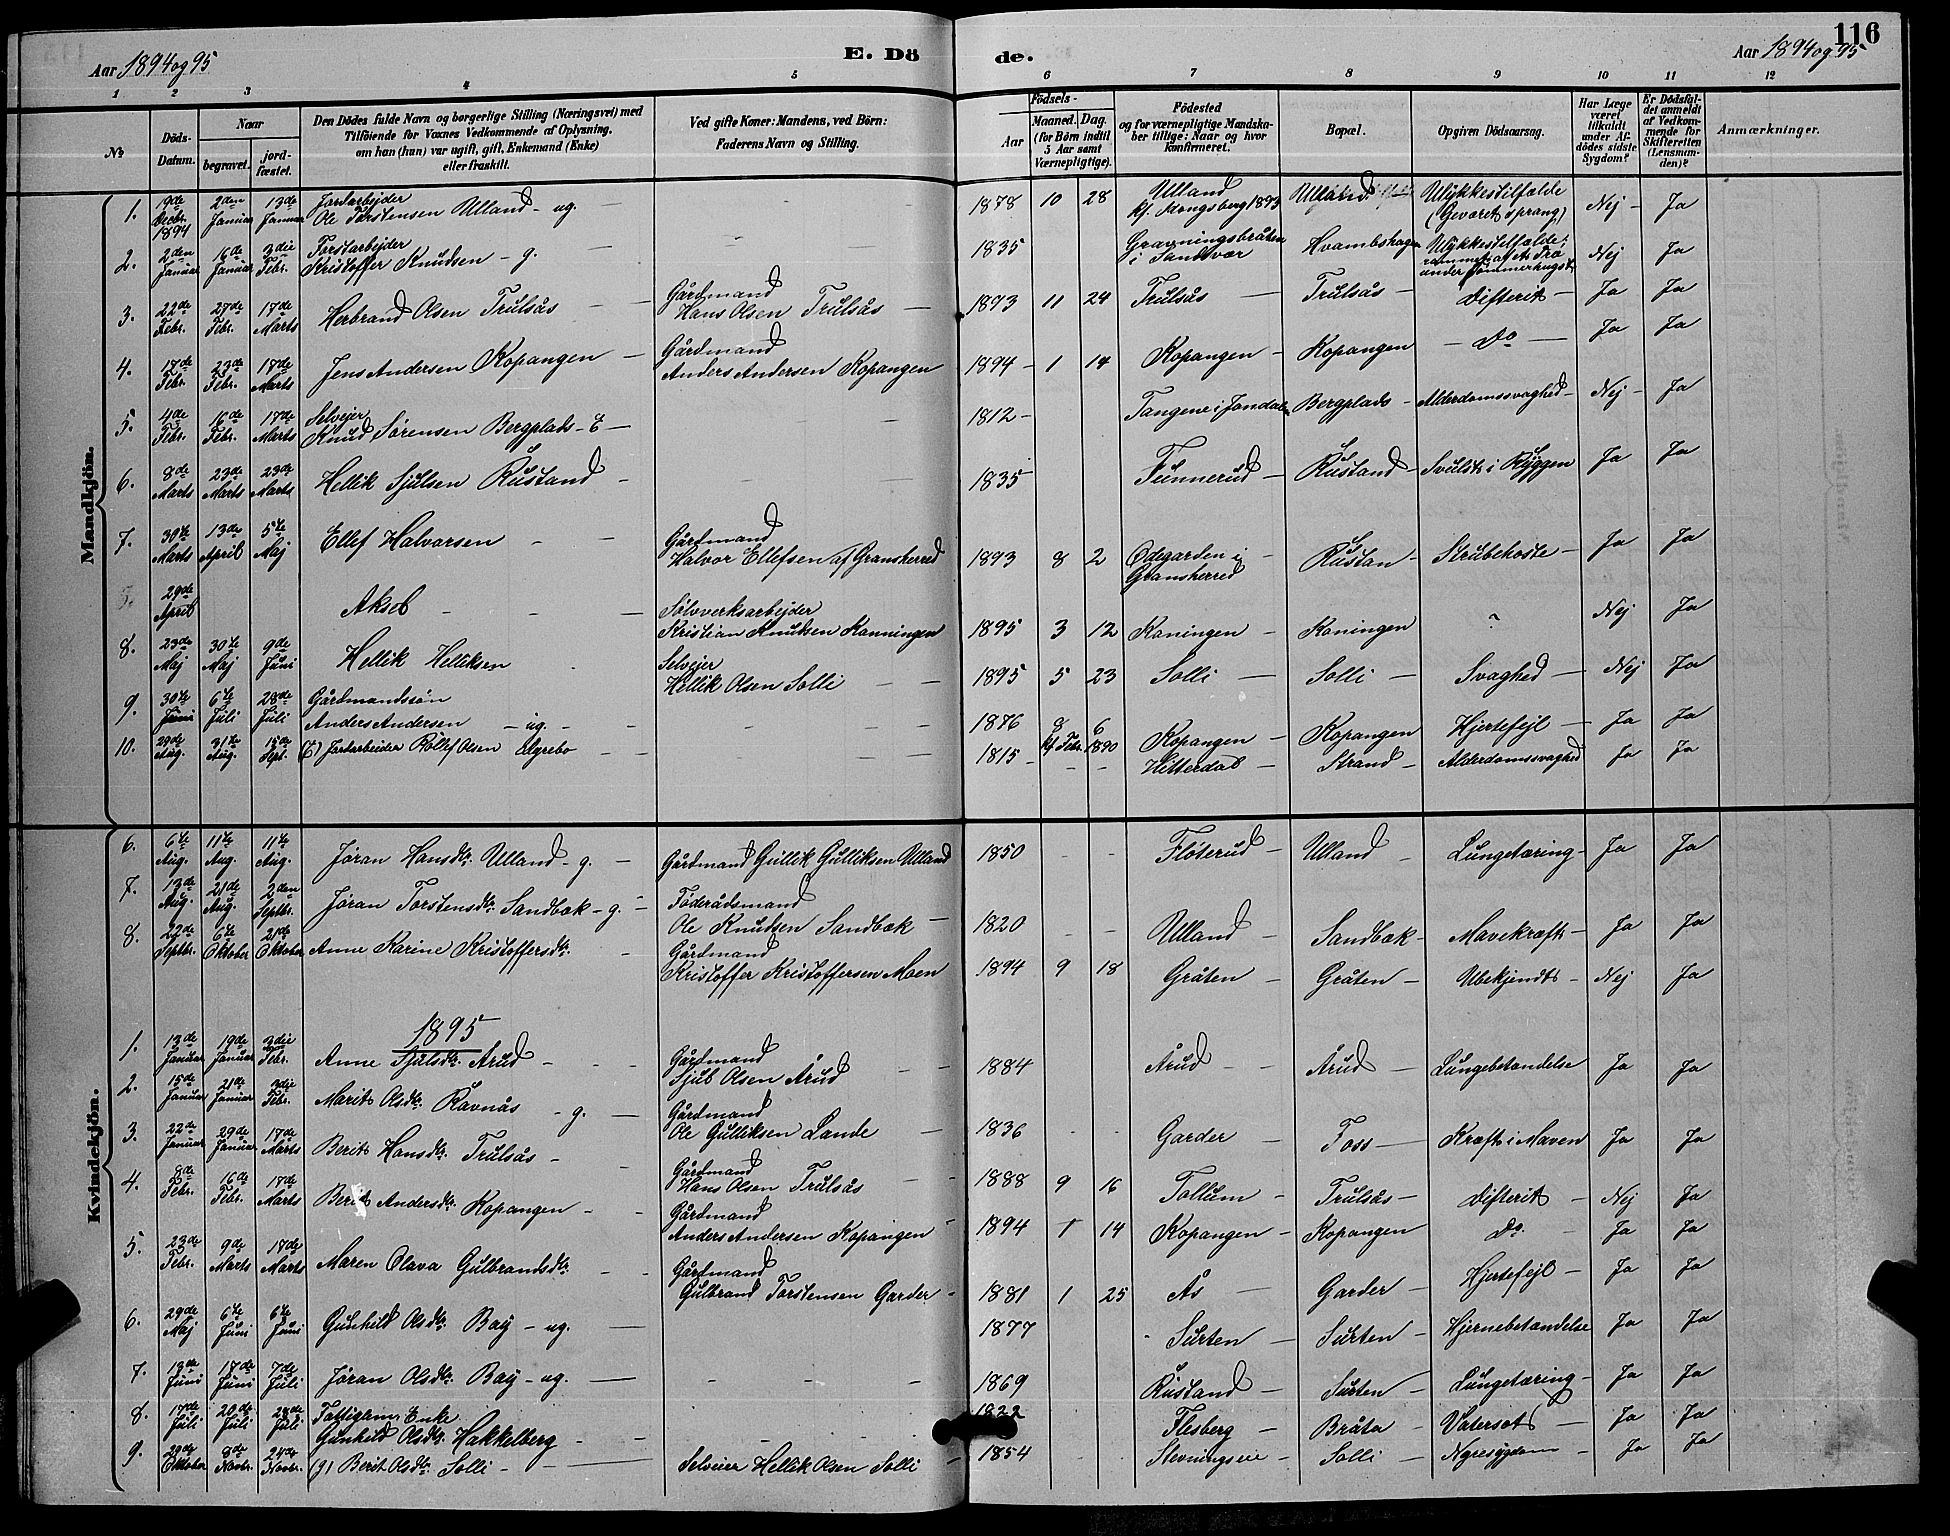 116
Aar 1894 og 95 E. Dö de. Aar 1894 og 95
1 2 3 4 5 6 7 8 9 10 11 12
No Döds-Datum. Naar begravet. jord-fæstet. Den Dödes fulde Navn og borgerlige Stilling (Næringsvei) med Tilföiende for Voxnes Vedkommende af Oplysning, om han (hun) var ugift, gift, Enkemand (Enke) eller fraskilt. Ved gifte Koner: Mandens, ved Börn: Faderens Navn og Stilling. Födsels- Aar Maaned. Dag. (for Börn indtil 5 Aar samt Værnepligtige). Födested og for værnepligtige Mandskaber tillige: Naar og hvor konfirmeret. Bopæl. Opgiven Dödsaarsag. Har Læge været tilkaldt under Afdödes sidste Sygdom? Er Dödsfaldet anmeldt af Vedkommende for Skifteretten (Lensmanden)? Anmærkninger.
Mandkjön.
1. 19de Decbr. 1894 2den Januar 13de Januar Jordarbejder Ole Torstensen Ulland - ug. - - 1878 10 28 Ulland kf. Kongsberg 1893 Ulland Ulykkestilfælde (Geværet sprang) Nej - Ja
2. 2den Januar 16de Januar 3die Febr. Forstarbejder Kristoffer Knudsen - g. - - 1835 Gravningsbråten i Sandsvær Hvambshagen Ulykkestilfælde; rammet af et Træ under Tømmerhugst Nej Ja
3. 22de Febr. 27de Febr. 17de Marts Herbrand Olsen Trulsås - Gårdmand Hans Olsen Trulsås - 1893 11 24 Trulsås - Trulsås - Difterit - Ja Ja
4. 17de Febr. 23de Febr. 17de Marts Jens Andersen Kopangen - Gårdmand Anders Andersen Kopangen 1894 - 1 14 Kopangen - Kopangen - Do - Ja Ja
5. 4de Febr. 16de Febr. 17de Marts Selvejer Knud Sørensen Bergplads - E - - - 1812 - Tangene i Jondal Bergplads - Alderdomssvaghed - Nej - Ja
6. 8de Marts 23de Marts 23de Marts Hellik Sjulsen Rustand - - - 1835 Funnerud - Rustand - Svulst i Ryggen Ja Ja
7. 30te Marts 13de April 5te Maj Ellef Halvorsen - - Gårdmand Halvor Ellefsen af Gransherred 1893 8 2 Ødegarden i Gransherred Rustan - Strubehoste - Ja Ja
29de April Aksel - - - Sølvverksarbejder Kristian Knudsen Konningen 1895 3 12 Koningen - Koningen ? Nej Ja
8. 23de Maj 30te Maj 9de Juni Hellik Helliksen Selvejer Hellik Olsen Solli - - 1895 5 23 Solli - Solli - Svaghed - Nej Ja
9. 30te Juni 6te Juli 28de Juli Gårdmandssøn Anders Andersen - ug. - - - 1876 8 6 kf Febr. 1890 Kopangen - Kopangen Hjertefejl - Ja Ja
10. 29de Aug. 31te Aug. 15de Sept. (E) Jordarbeider Rollef Olsen Elgrebo - - - 1815 - - - Hitterdal - Strand - Alderdomssvaghed Ja Ja
Kvindekjön.
6. 6te Aug. 11te Aug. 11te Aug. Jøran Hansdtr. Ulland - g. - Gårdmand Gullik Gulliksen Ulland 1850 - - Floterud - Ulland - Lungetæring - Ja Ja
7. 13de Aug. 21de Aug. 2den Septbr. Jøran Torstensdtr. Sandbæk - g. - Føderådsmand Ole Knudsen Sandbæk - 1820 - - Ulland - Sandbæk - Mavekræft - Ja Ja
8. 22de Septbr. 6te Oktober 21de Oktober Anne Karine Kristoffersdtr. - Gårdmand Kristoffer Kristoffersen Moen 1894 9 18 Gråten - Gråten - Ubekjendt - Nej Ja
1895
1. 13de Januar 19de Januar 3die Febr. Anne Sjulsdtr. Årud - - Gårdmand Sjul Olsen Årud - - 1884 Årud - - Årud - Lungebetændelse Ja Ja
2. 15de Januar 21de Januar 3die Febr. Marit Olsdtr. Ravnås - g. - Gårdmand Ole Gulliksen Lande - 1836 - - Garder - Foss - Kræft i Maven Ja Ja
3. 22de Januar 29de Januar 17de Marts Berit Hansdtr. Trulsås - - Gårdmand Hans Olsen Trulsås - - 1888 9 16 Tollum - Trulsås - Difterit - Nej Ja
4. 8de Febr. 16de Febr. 17de Marts Berit Andersdtr. Kopangen - - Gårdmand Anders Andersen Kopangen - 1894 1 14 Kopangen - Kopangen Do. - Ja Ja
5. 23de Febr. 9de Marts 17de Marts Maren Olava Gulbrandsdtr. - - Gårdmand Gulbrand Torstensen Garder - 1881 1 25 Ås - Garder - Hjertefejl - Ja Ja
6. 29de Maj 6te Juni 6te Juni Gunhild Olsdtr. Bay - ug. - 1877 Surten - Surten - Hjernebetændelse Ja Ja
7. 13de Juni 17de Juni 7de Juli Jøran Olsdtr. Bay - ug. - - - - 1869 Rustand - Surten - Lungetæring - Ja Ja
8. 17de Juli 20de Juli 28de Juli Fattiglem, Enke Gunhild Olsdtr. Hakkelberg - - - - 1822 Flesberg - Bråta - Vatersot - Ja Ja
9. 29de Oktober 8de Novbr. 24de Novbr. (g) Berit Olsdtr. Solli - - Selveier Hellik Olsen Solli - 1854 Stevningseie - Solli - Nyresygdom - Ja Ja